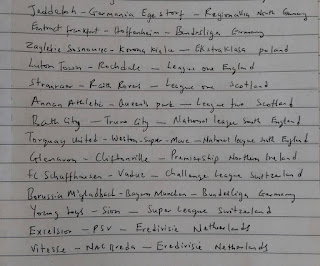 Jeddeloh - Germania Egestorf - Regionalliga North Germany
Eintract frankfut - Hoffenheim - Bundesliga Germany
Zaglebie Sosnowiec - Korona Kielce - Ekstraklasa poland
Luton Town - Rochdale - League one England
Stranraer - Raith Rovers - League one Scotland
Annan Athletic - Queen's park - League two Scotland
Bath City - Truro City - National league South England
Torquay United - Weston-Super-Mare - National league South England
Glenavon - Cliftonville - Premiership Northern Ireland
fc Schaffhausen - Vaduz - Challenge League Switzerland
Borussia M'gladbach - Bayern Munchen - Bundesliga Germany
Young boys - Sion - Super League Switzerland
Excelsior - PSV - Eredivisie Netherlands
Vitesse - NAC Breda - Eredivisie Netherlands